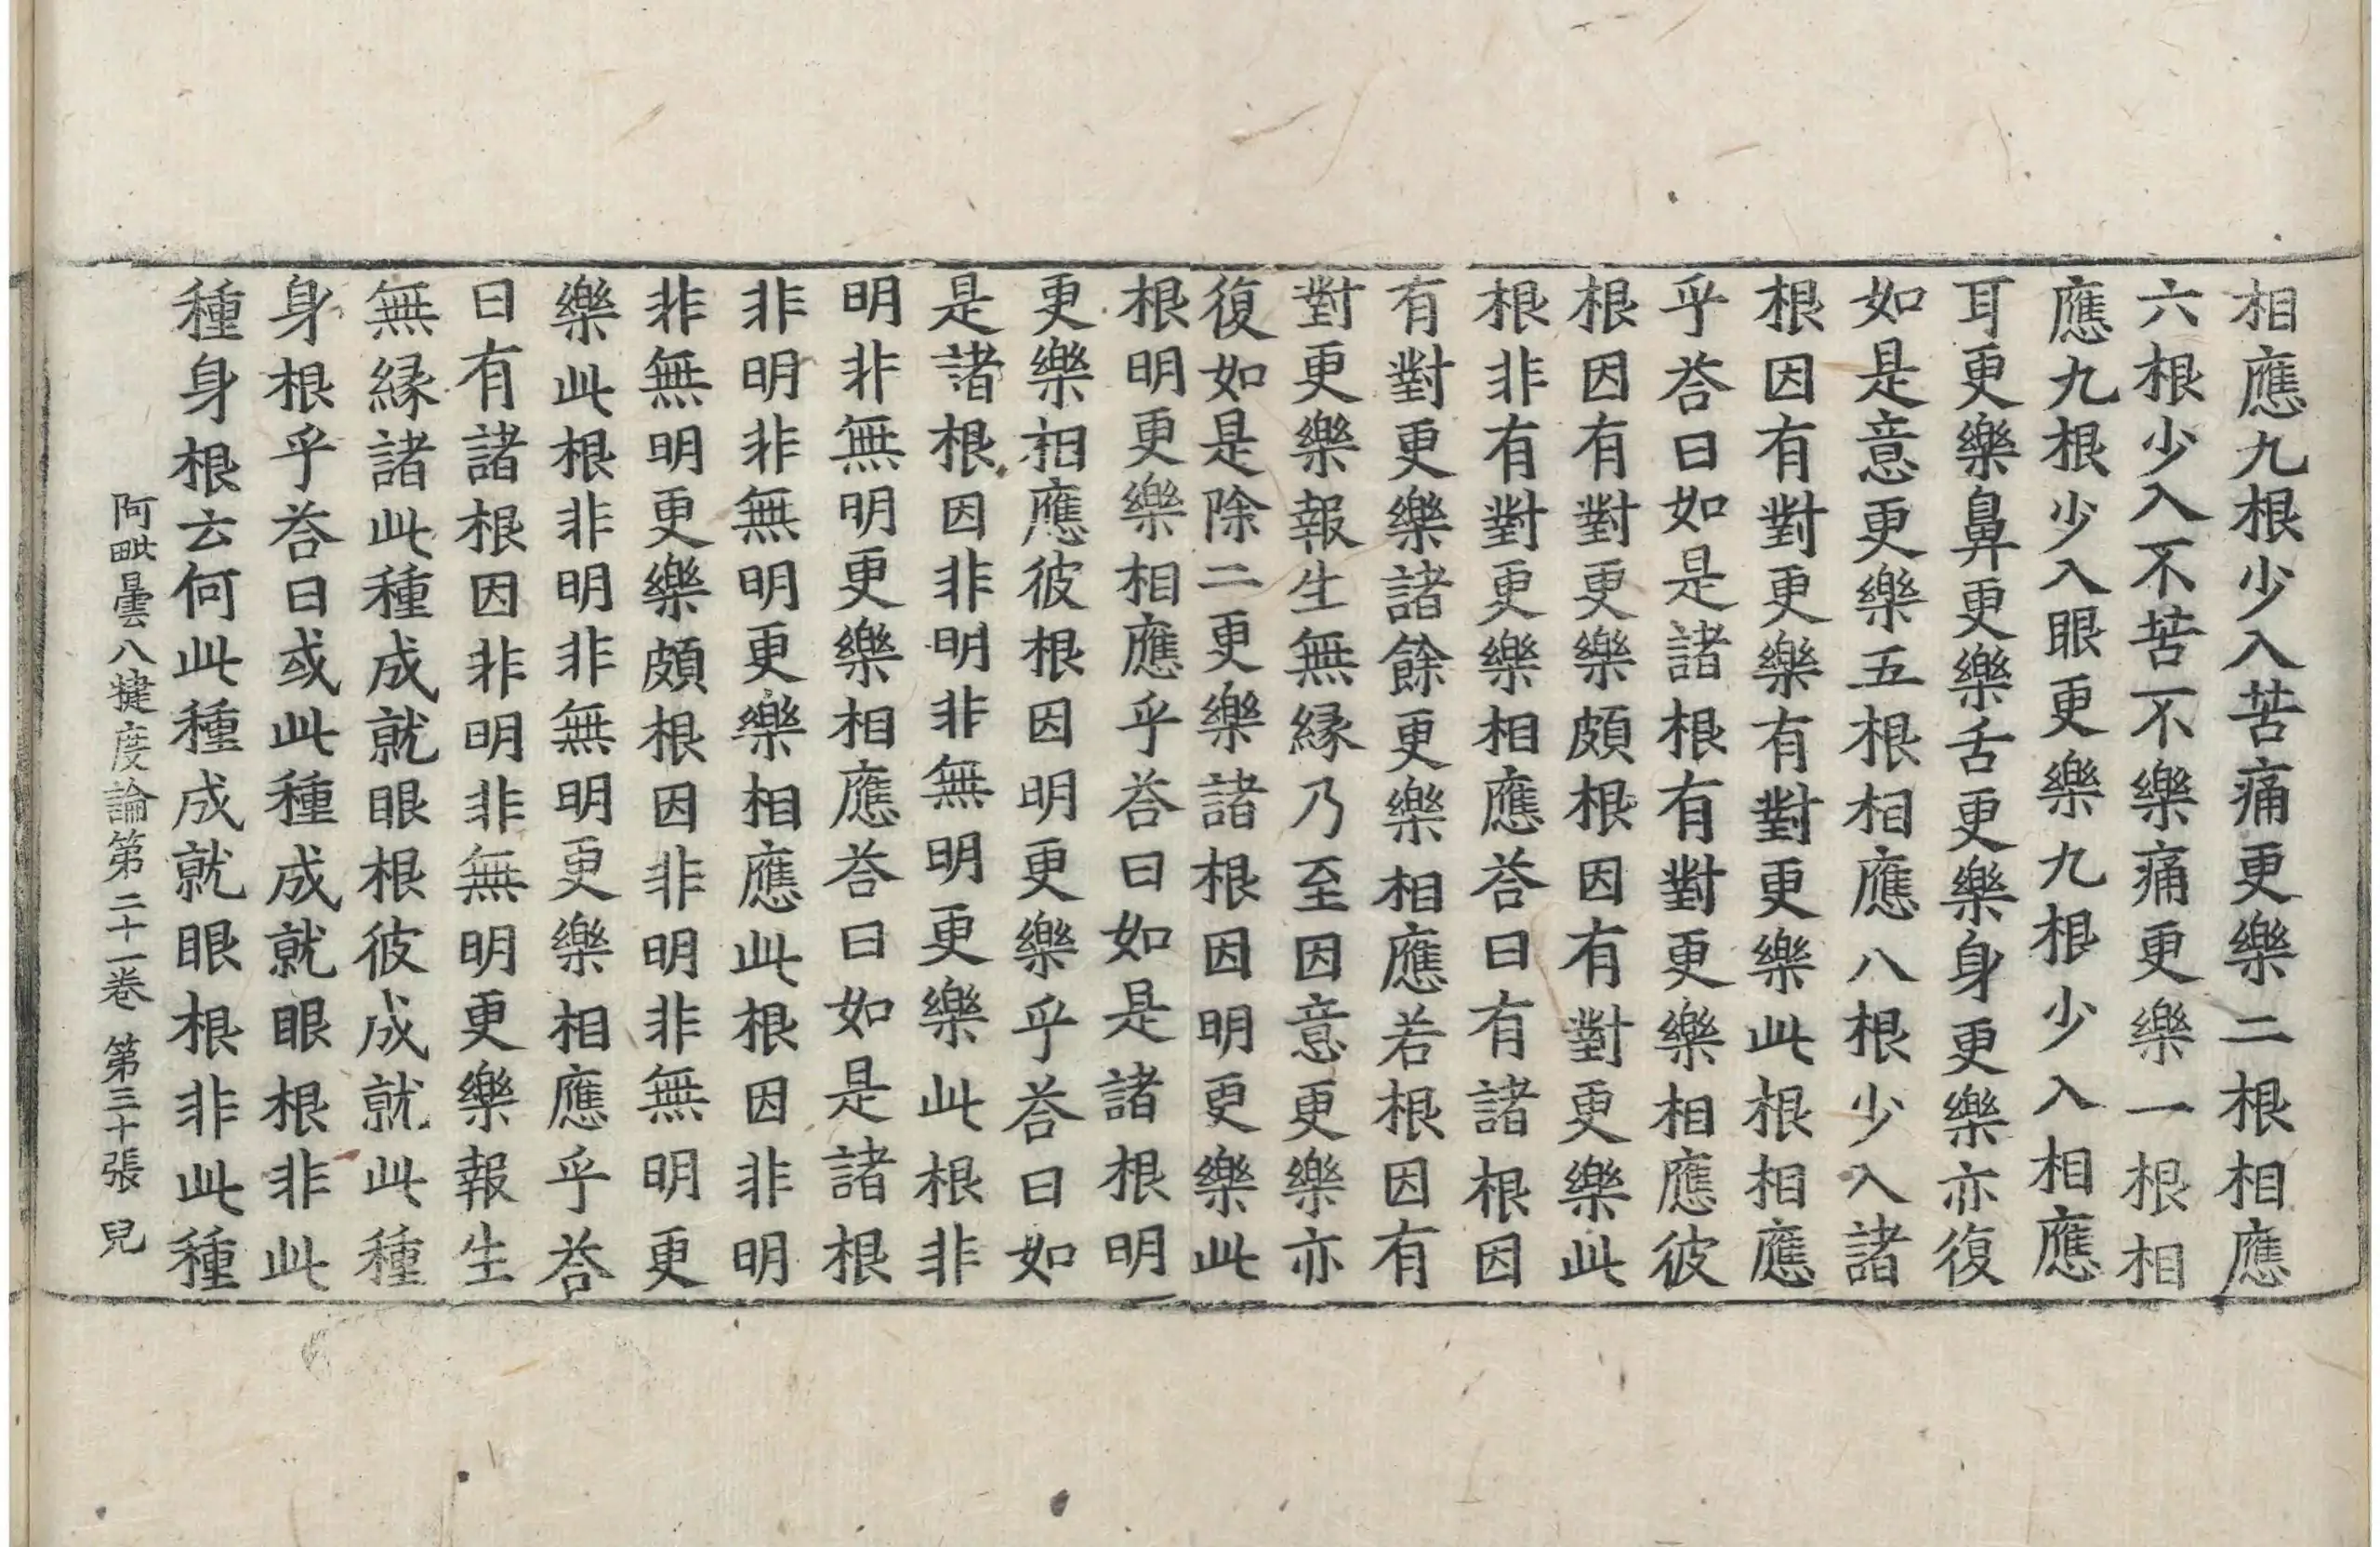 相應九根少入苦痛更樂二根相應
六根少入不苦不樂痛更樂一根相
應九根少入眼更樂九根少入相應
耳更樂鼻更樂舌更樂身更樂亦復
如是意更樂五根相應八根少入諸
根因有對更樂有對更樂此根相應
乎荅曰如是諸根有對更樂相應彼
根因有對更樂頗根因有對更樂此
根非有對更樂相應荅曰有諸根因
有對更樂諸餘更樂相應若根因有
對更樂報生無緣乃至因意更樂亦
復如是除二更樂諸根因明更樂此
根明更樂相應乎荅曰如是諸根明
更樂相應彼根因明更樂乎荅曰如
是諸根因非明非無明更樂此根非
明非無明更樂相應荅曰如是諸根
非明非無明更樂相應此根因非明
非無明更樂頗根因非明非無明更
樂此根非明非無明更樂相應乎荅
曰有諸根因非明非無明更樂報生
無緣諸此種成就眼根彼成就此種
身根乎荅曰或此種成就眼根非此
種身根云何此種成就眼根非此種
阿毗曇八犍度論第二十一卷 第三十張 兒